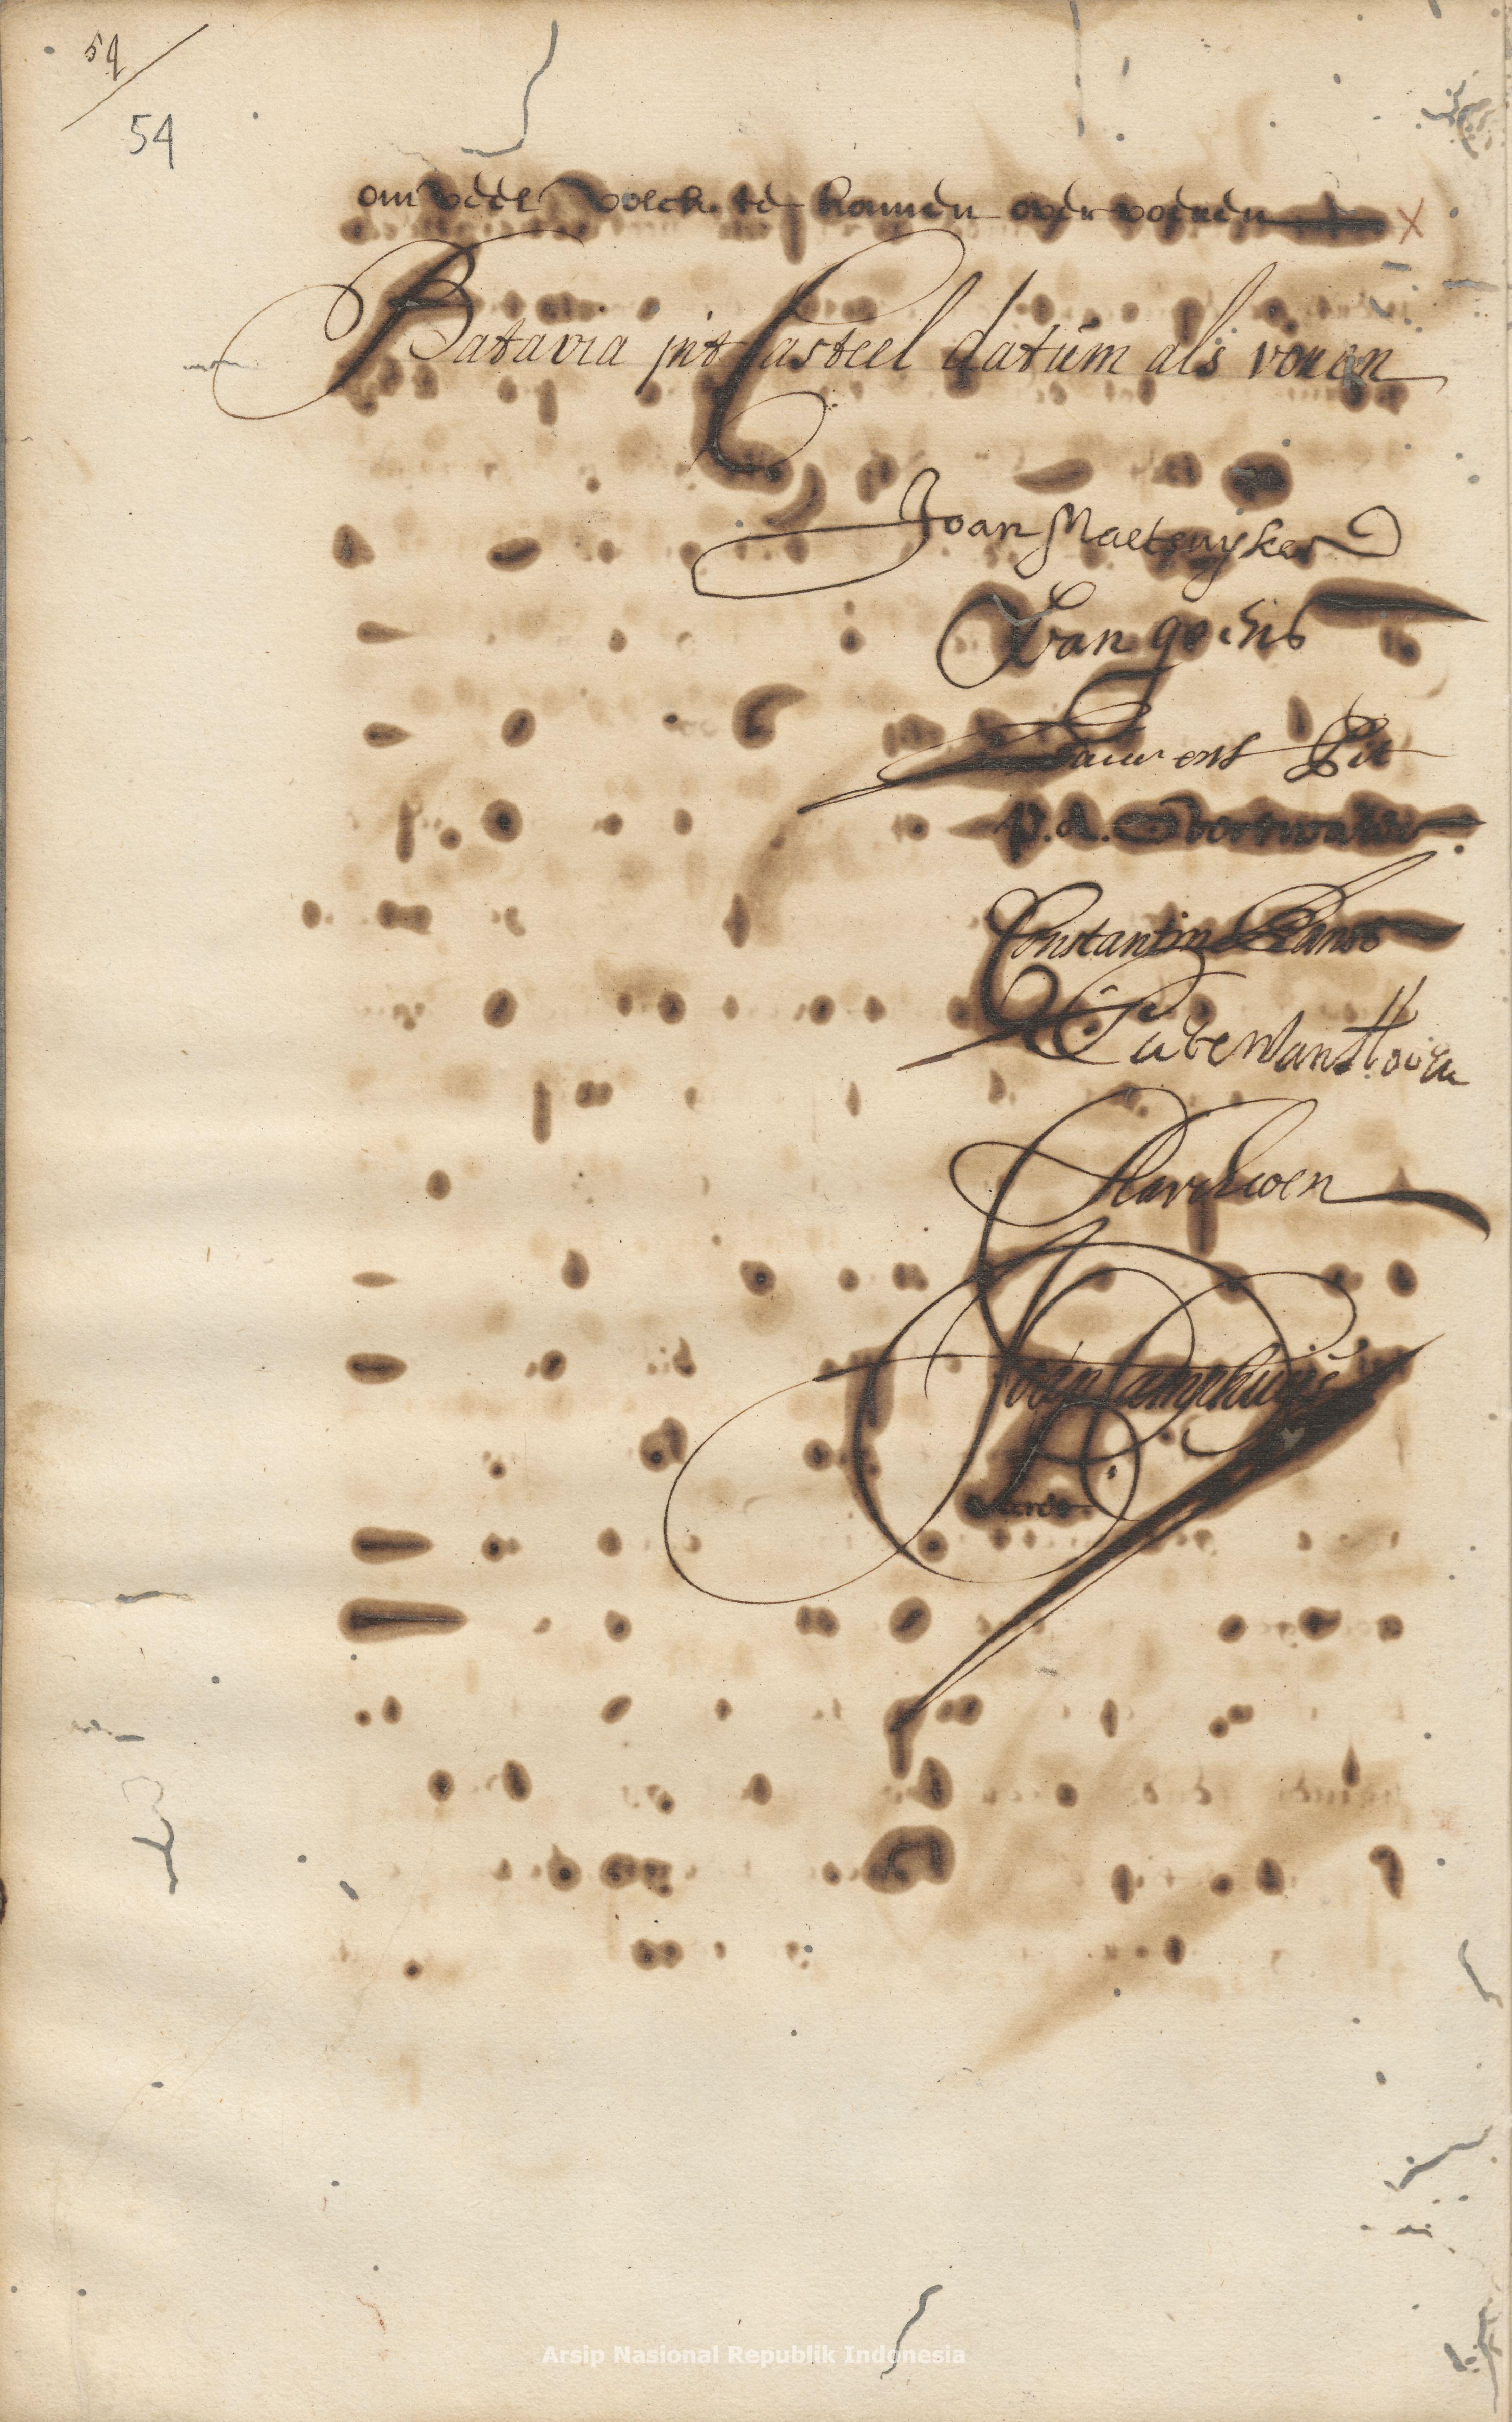 54
54
om veel volck te konnen overvoeren X
Batavia int Casteel datum als voren
Joan Maetsuyker
R van goens
Laurens Pit
p. A. Overtwater
Constantin Ranst
Pieter van Hoorn
Joan Camphuys
Secrets.
Arsip Nasional Republik Indonesia